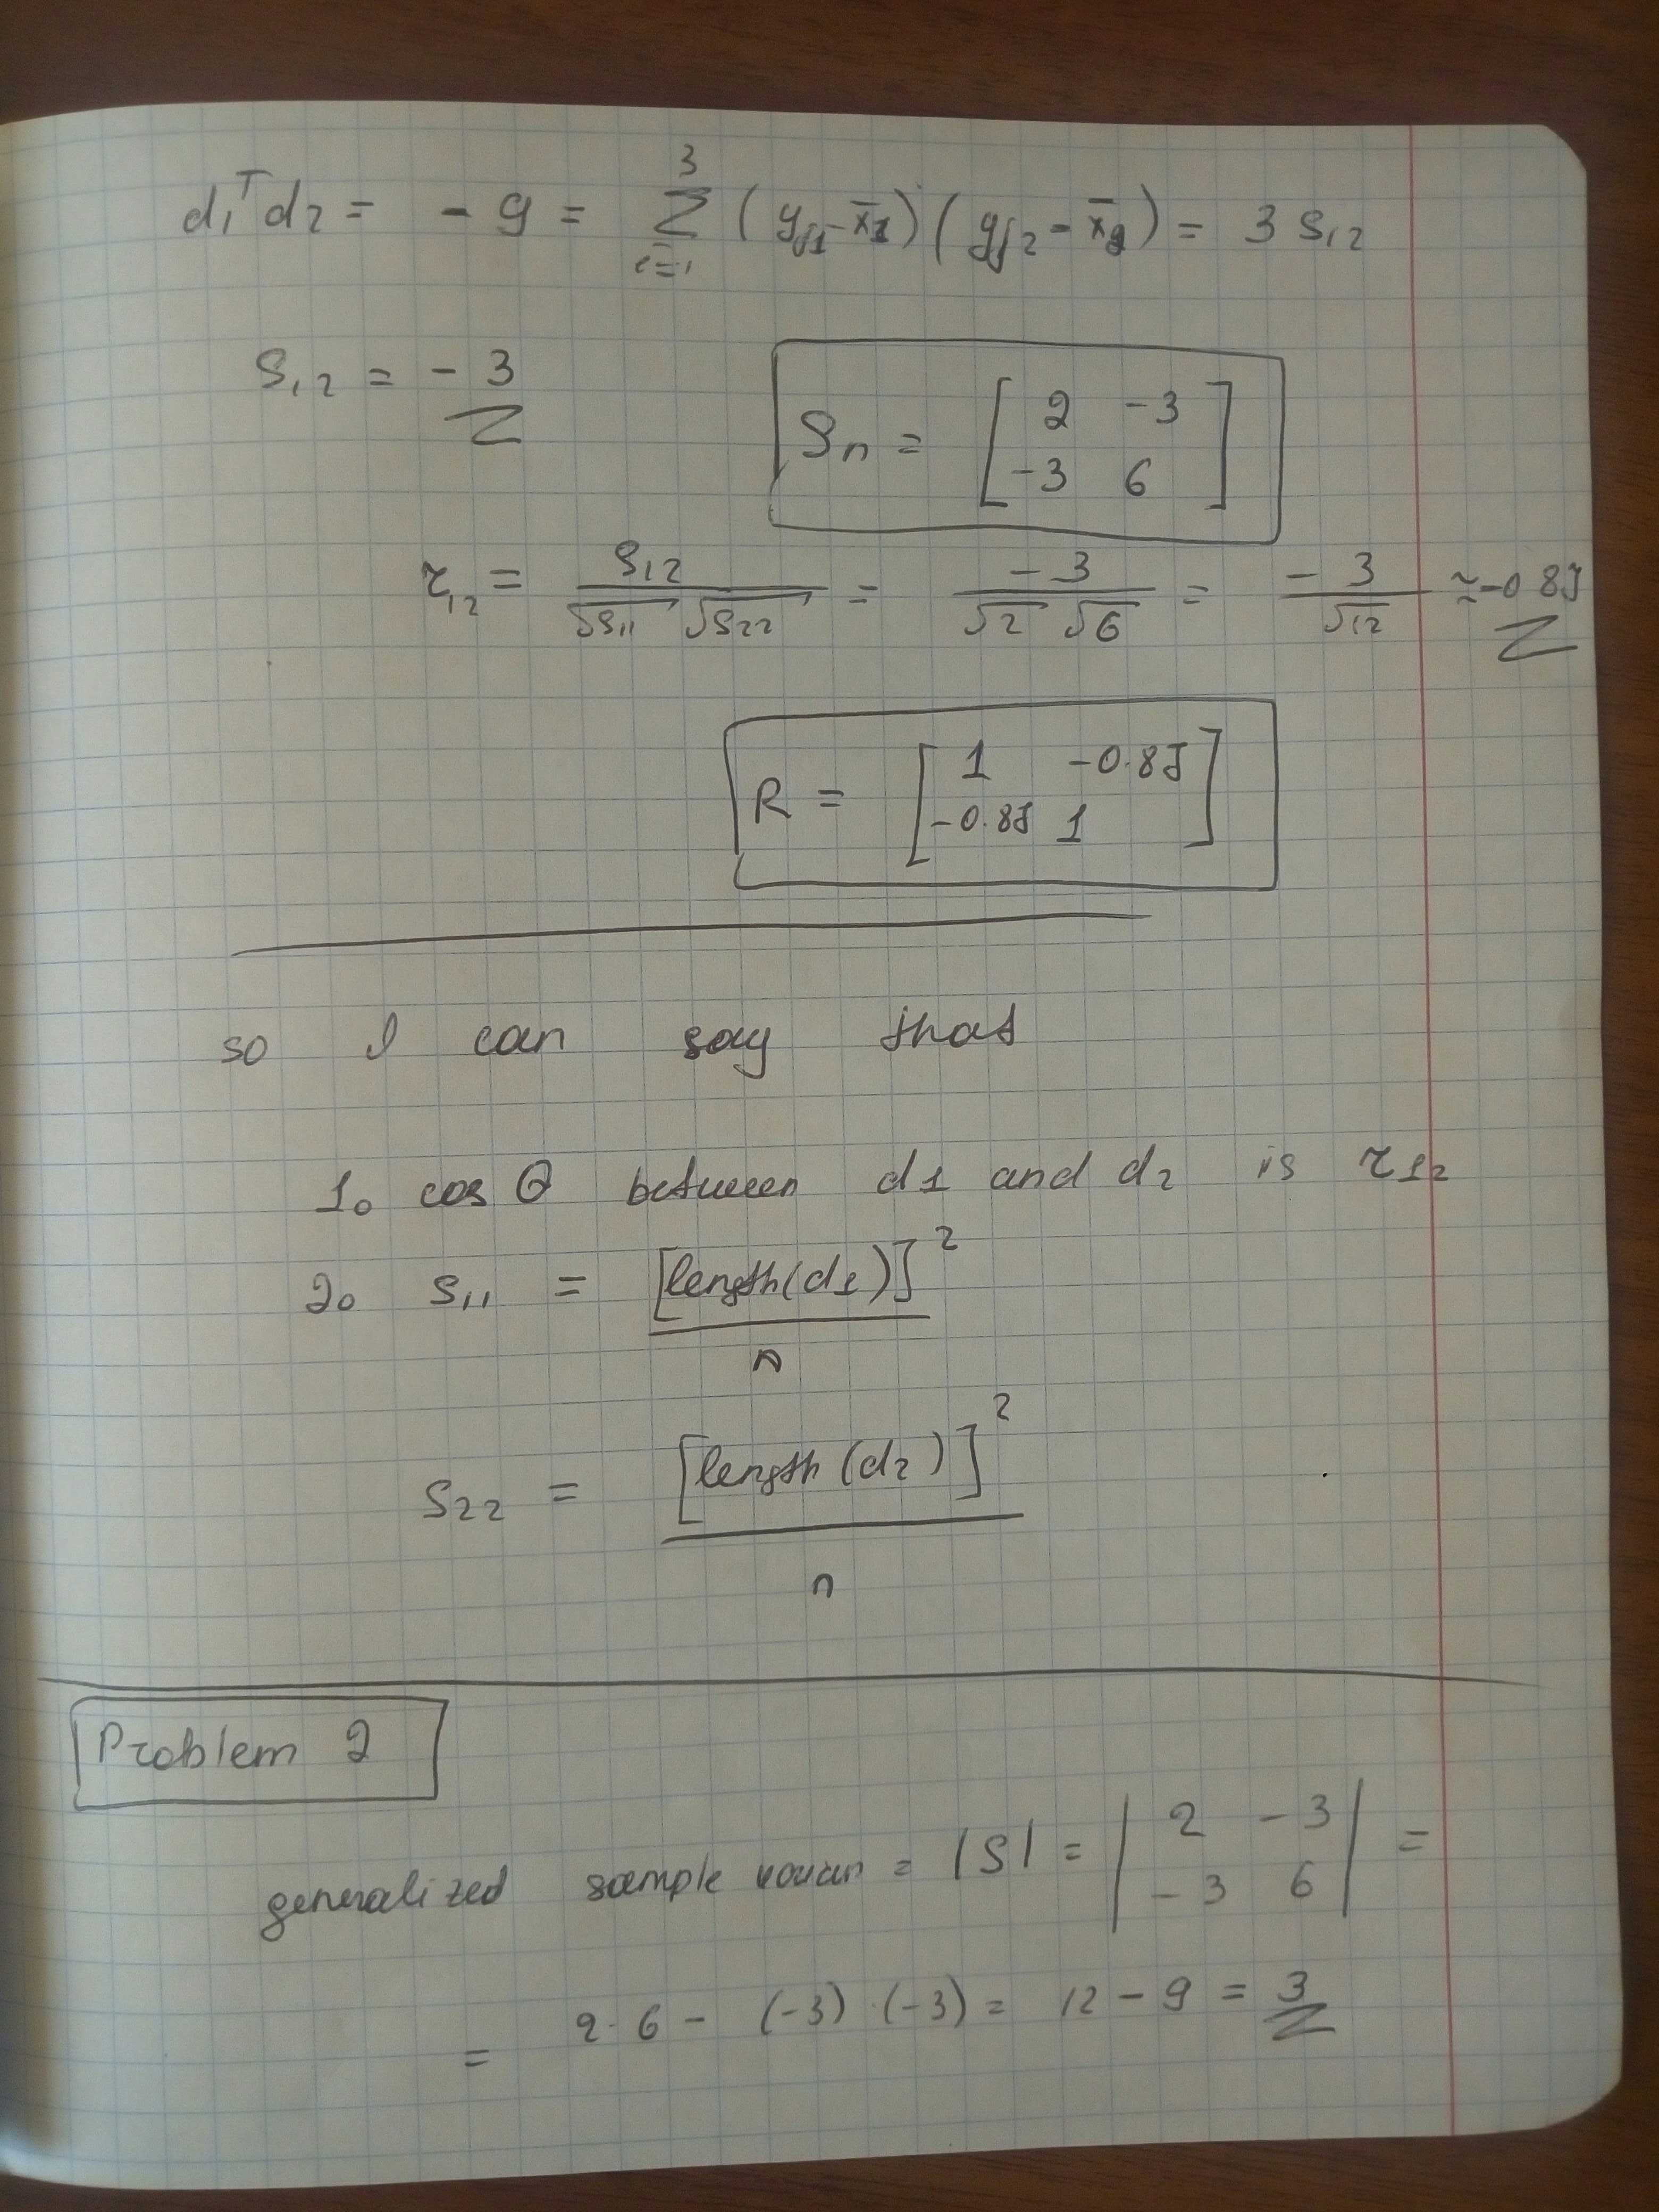 d₁ᵀd₂ = -9 = Σ³ᵢ₌₁ (yⱼ₁ - x̄₁)(yⱼ₂ - x̄₂) = 3 s₁₂
s₁₂ = -3
Sₙ = [2 -3
-3 6]
r₁₂ = s₁₂ / (√s₁₁ √s₂₂) = -3 / (√2 √6) = -3 / √12 ≈ -0.87
R = [1 -0.87
-0.87 1]
so I can say that
1. cos θ between d1 and d2 is r12
2. s₁₁ = [length(d1)]² / n
s₂₂ = [length(d2)]² / n
Problem 2
generalized sample = |S| = |2 -3
-3 6| =
= 2·6 - (-3)·(-3) = 12 - 9 = 3